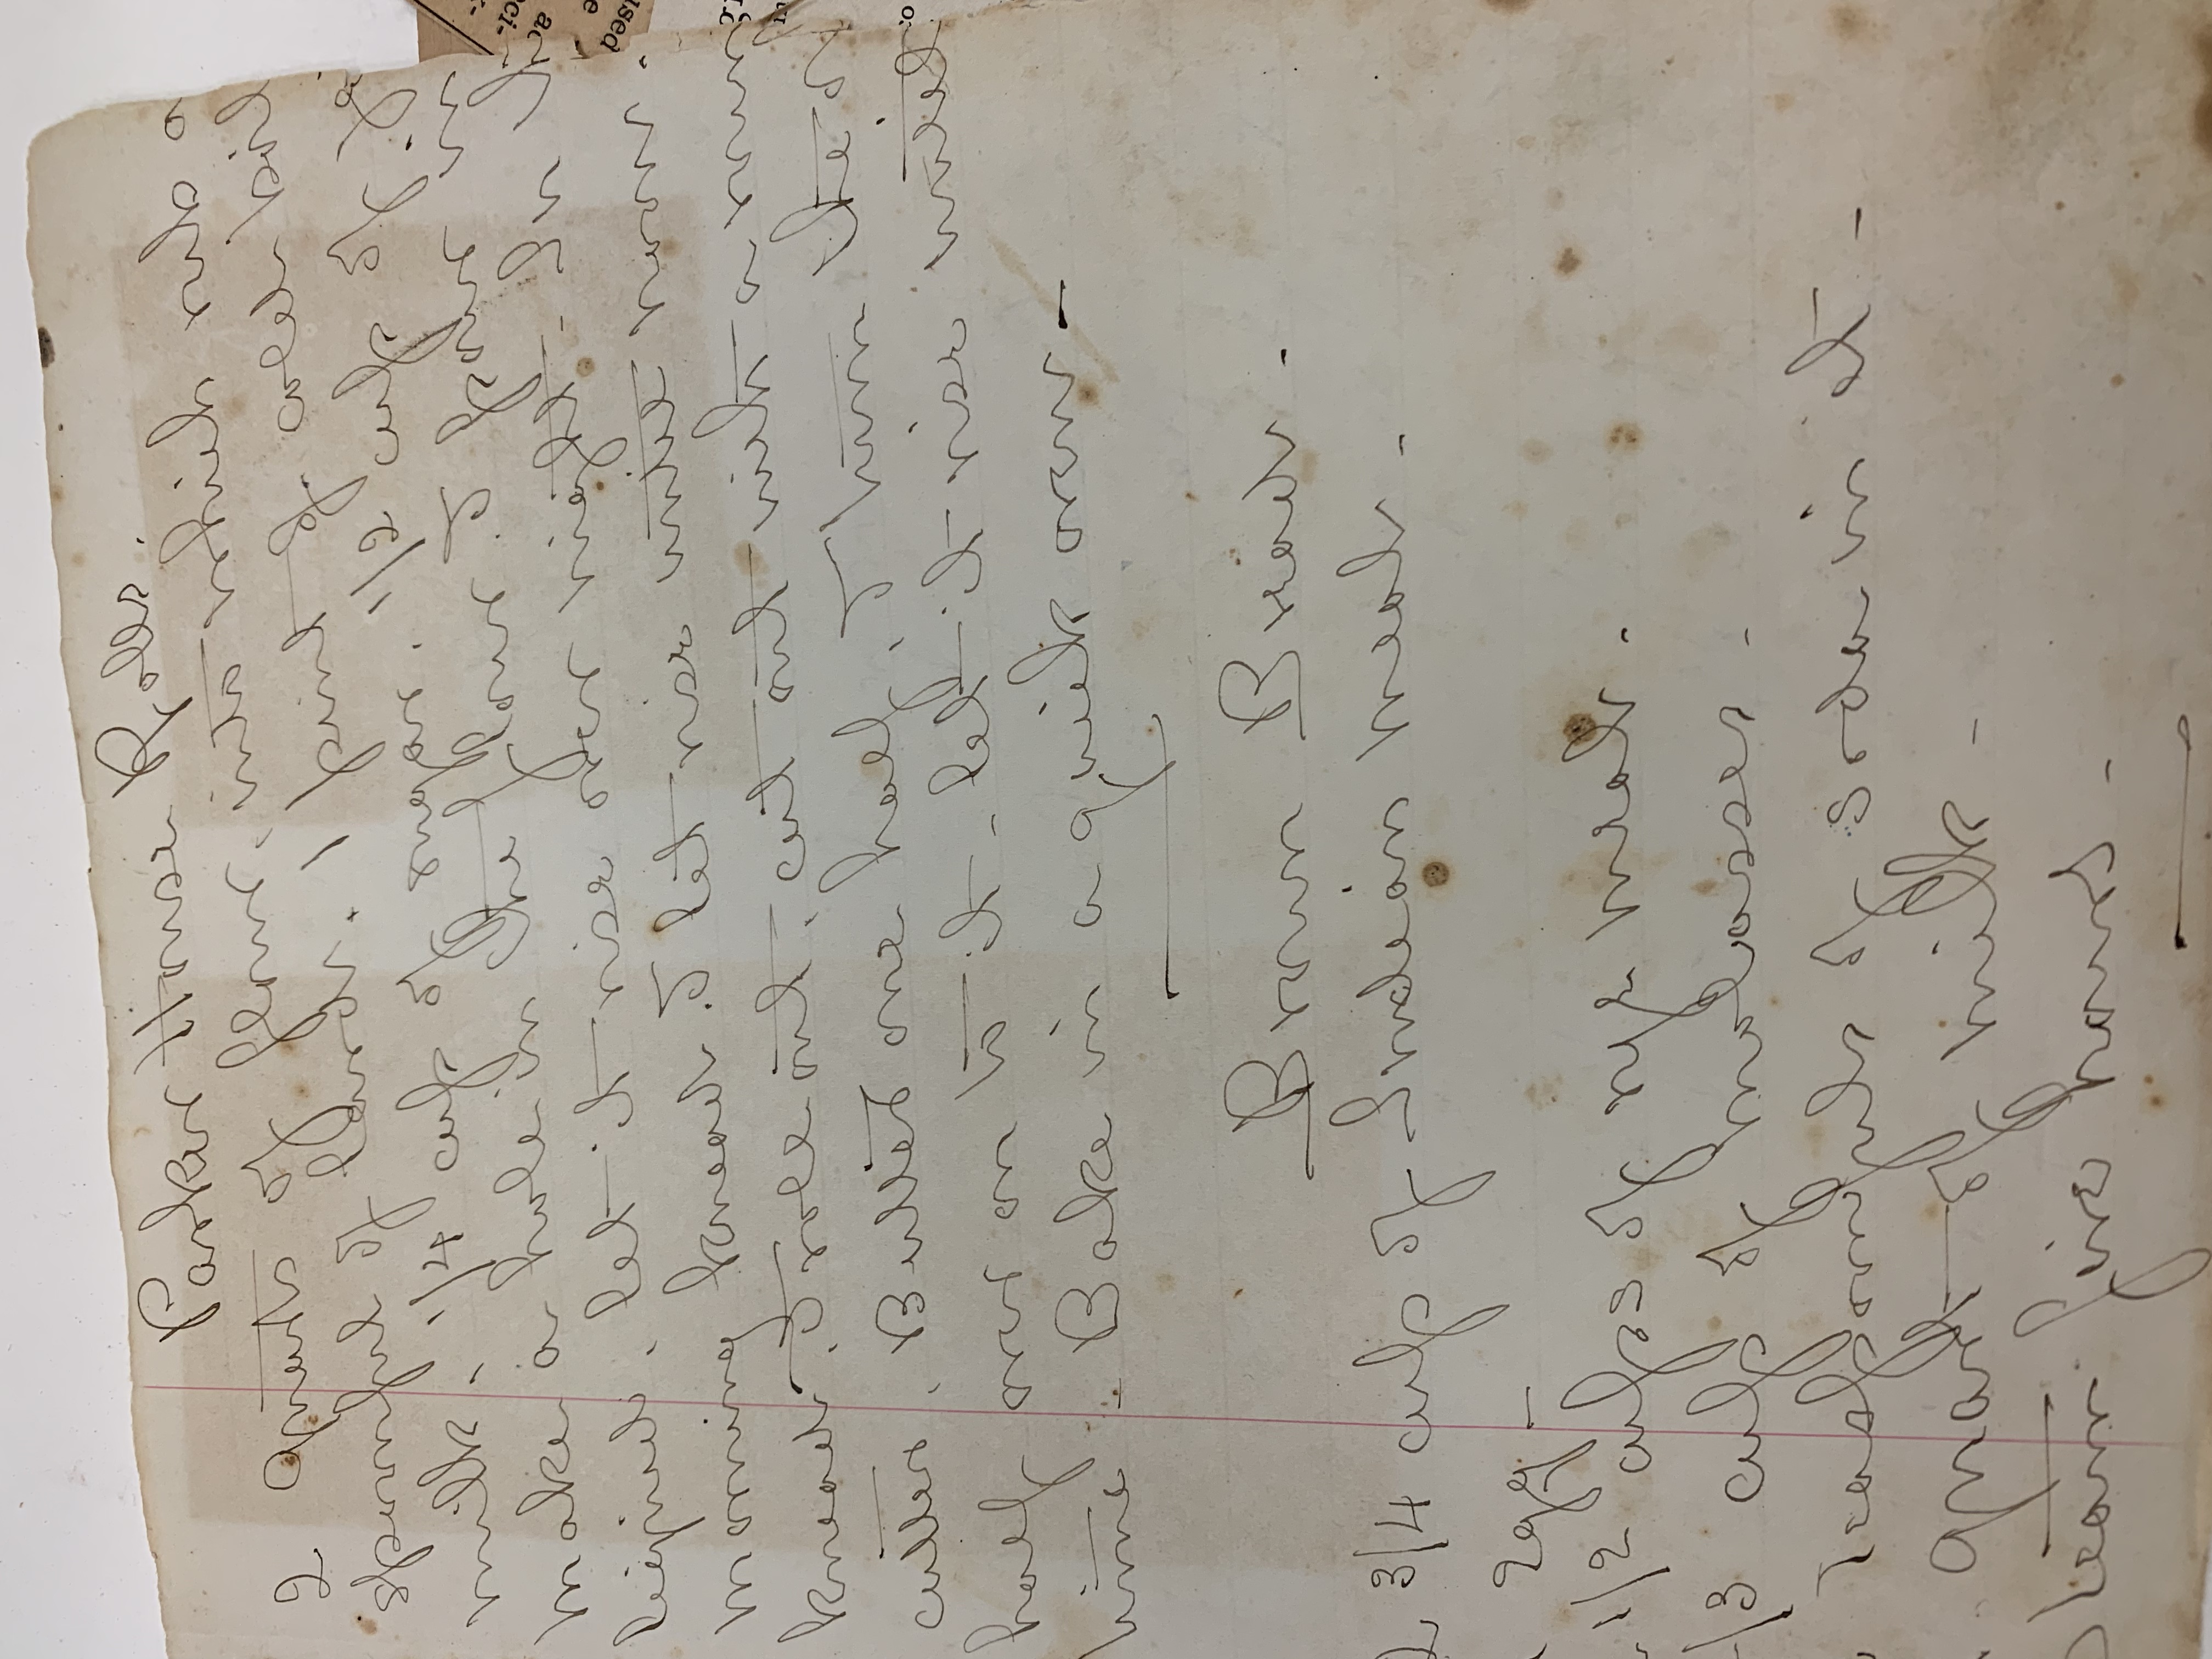 Parker House Rolls.
2 quarts of flour, into which rub a
spoonful of lard. 1 pint of cold boil
milk, 1/4 cup of sugar. 1/2 cup of
make a hole in the flour. & pour in
liquid, let it rise over night - In th
morning knead. & let rise until noon.
knead. & roll out, cut out with a roun
cutter, Butter one half, & turn the
half over on to it - let it rise until
time - Bake in a quick oven -
Brown Bread -
2 3/4 cup of Indian meal -
Egg -
1/2 cups of rye meal -
/3 cup of molasses -
teaspoonfuls of soda in it -
quart of milk -
Steam five hours -